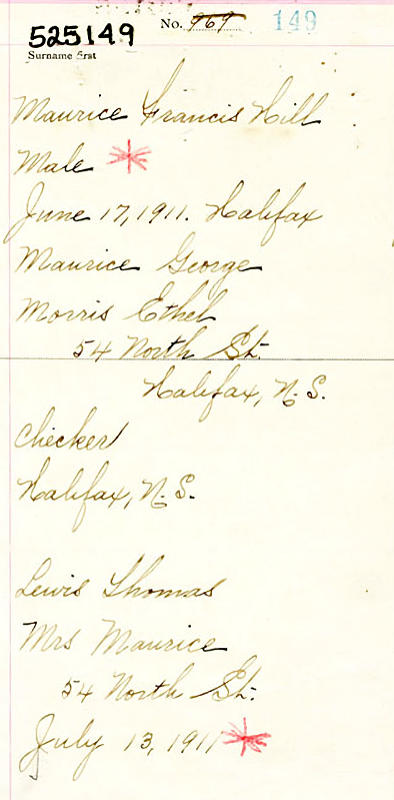 525149
No. 969 149
Surname first
Maurice Francis Hill
Male
June 17, 1911. Halifax
Maurice George
Morris Ethel
54 North St.
Halifax, N.S.
Checker
Halifax, N.S.
Lewis Thomas
Mrs Maurice
54 North St.
July 13, 1911